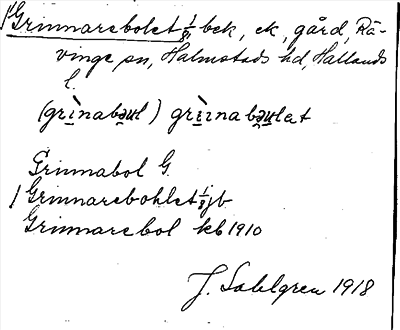 Grinnarebolet 1/8 bek, ek, gård, Rä-
vinge sn, Halmstads hd, Hallands
l.
(grìnabəɯl) grìɪnabəɯlət
Grinnabol G.
Grinnarebohlet 1/8 jb
Grinnarebol kb 1910
J. Sahlgren 1918